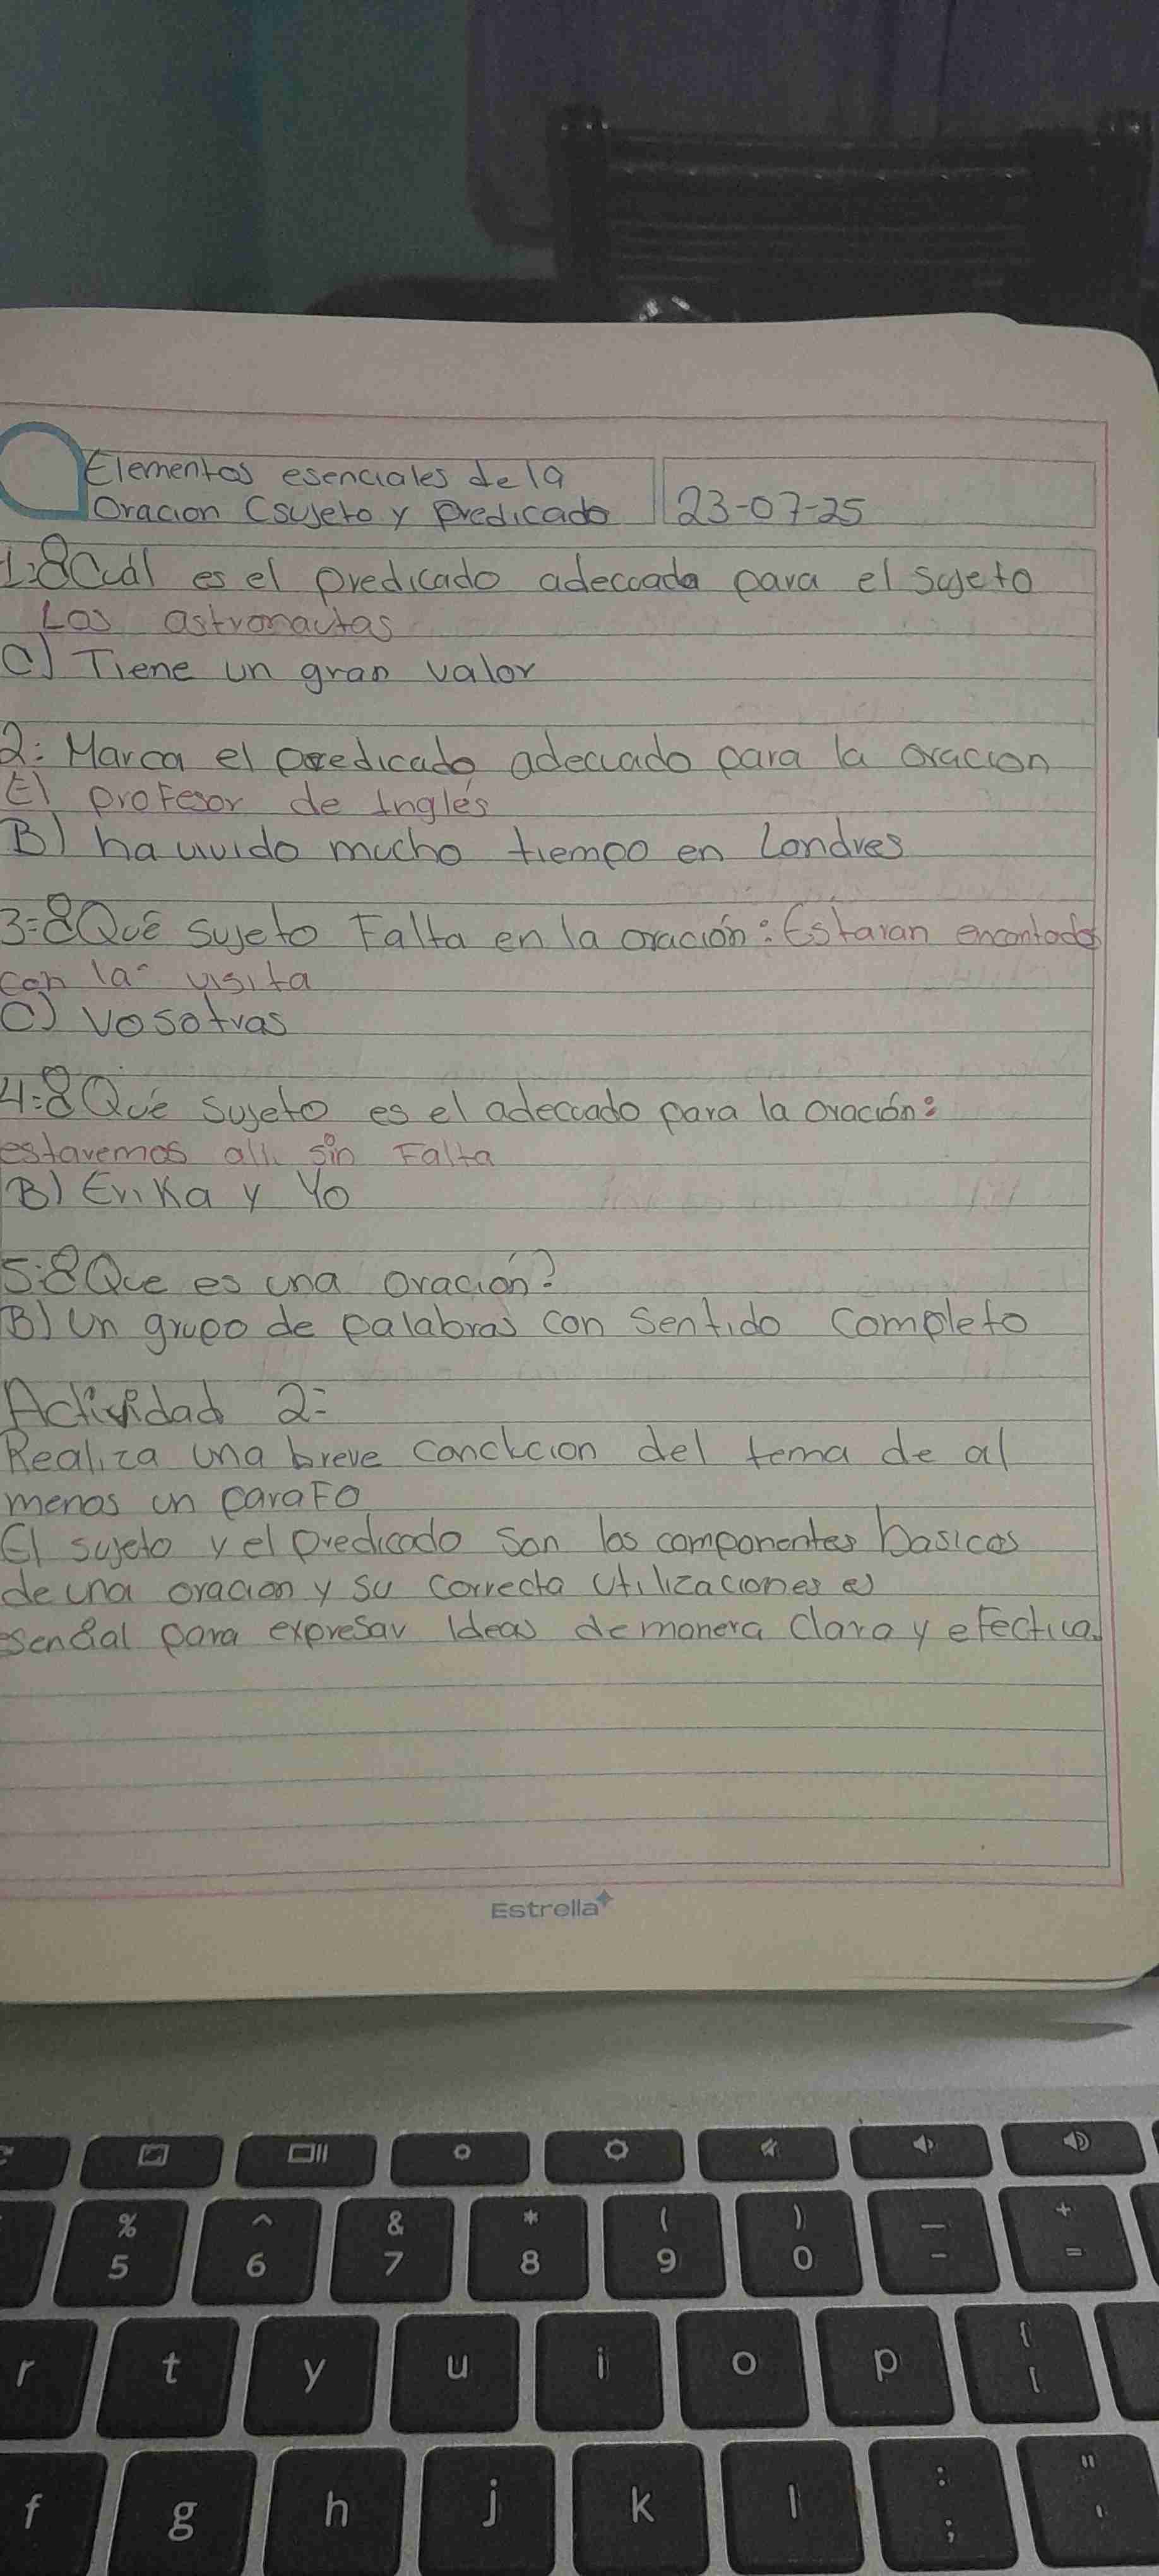 Elementos esenciales de la
Oracion (sujeto y predicado
23-07-25
1:¿Cuál es el predicado adecuada para el sujeto
Los astronautas
C) Tiene un gran valor
2: Marca el predicado adecuado para la oracion
El profesor de Inglés
B) ha vivido mucho tiempo en Londres
3:¿Qué sujeto Falta en la oración: Estaran encontados
con la visita
C) vosotras
4:¿Qué sujeto es el adecuado para la oración:
estaremos alli sin Falta
B) Erika y Yo
5:¿Que es una oración?
B) Un grupo de palabras con sentido completo
Actividad 2:
Realiza una breve conclcion del tema de al
menos un paraFo
El sujeto y el predicado son los componentes basicos
de una oracion y su correcta utilizaciones es
esencial para expresar Ideas de manera clara y efectiva.
Estrella
% ^ & * ( ) _ +
5 6 7 8 9 0 - =
r t y u i o p { [
f g h j k l : ; " '